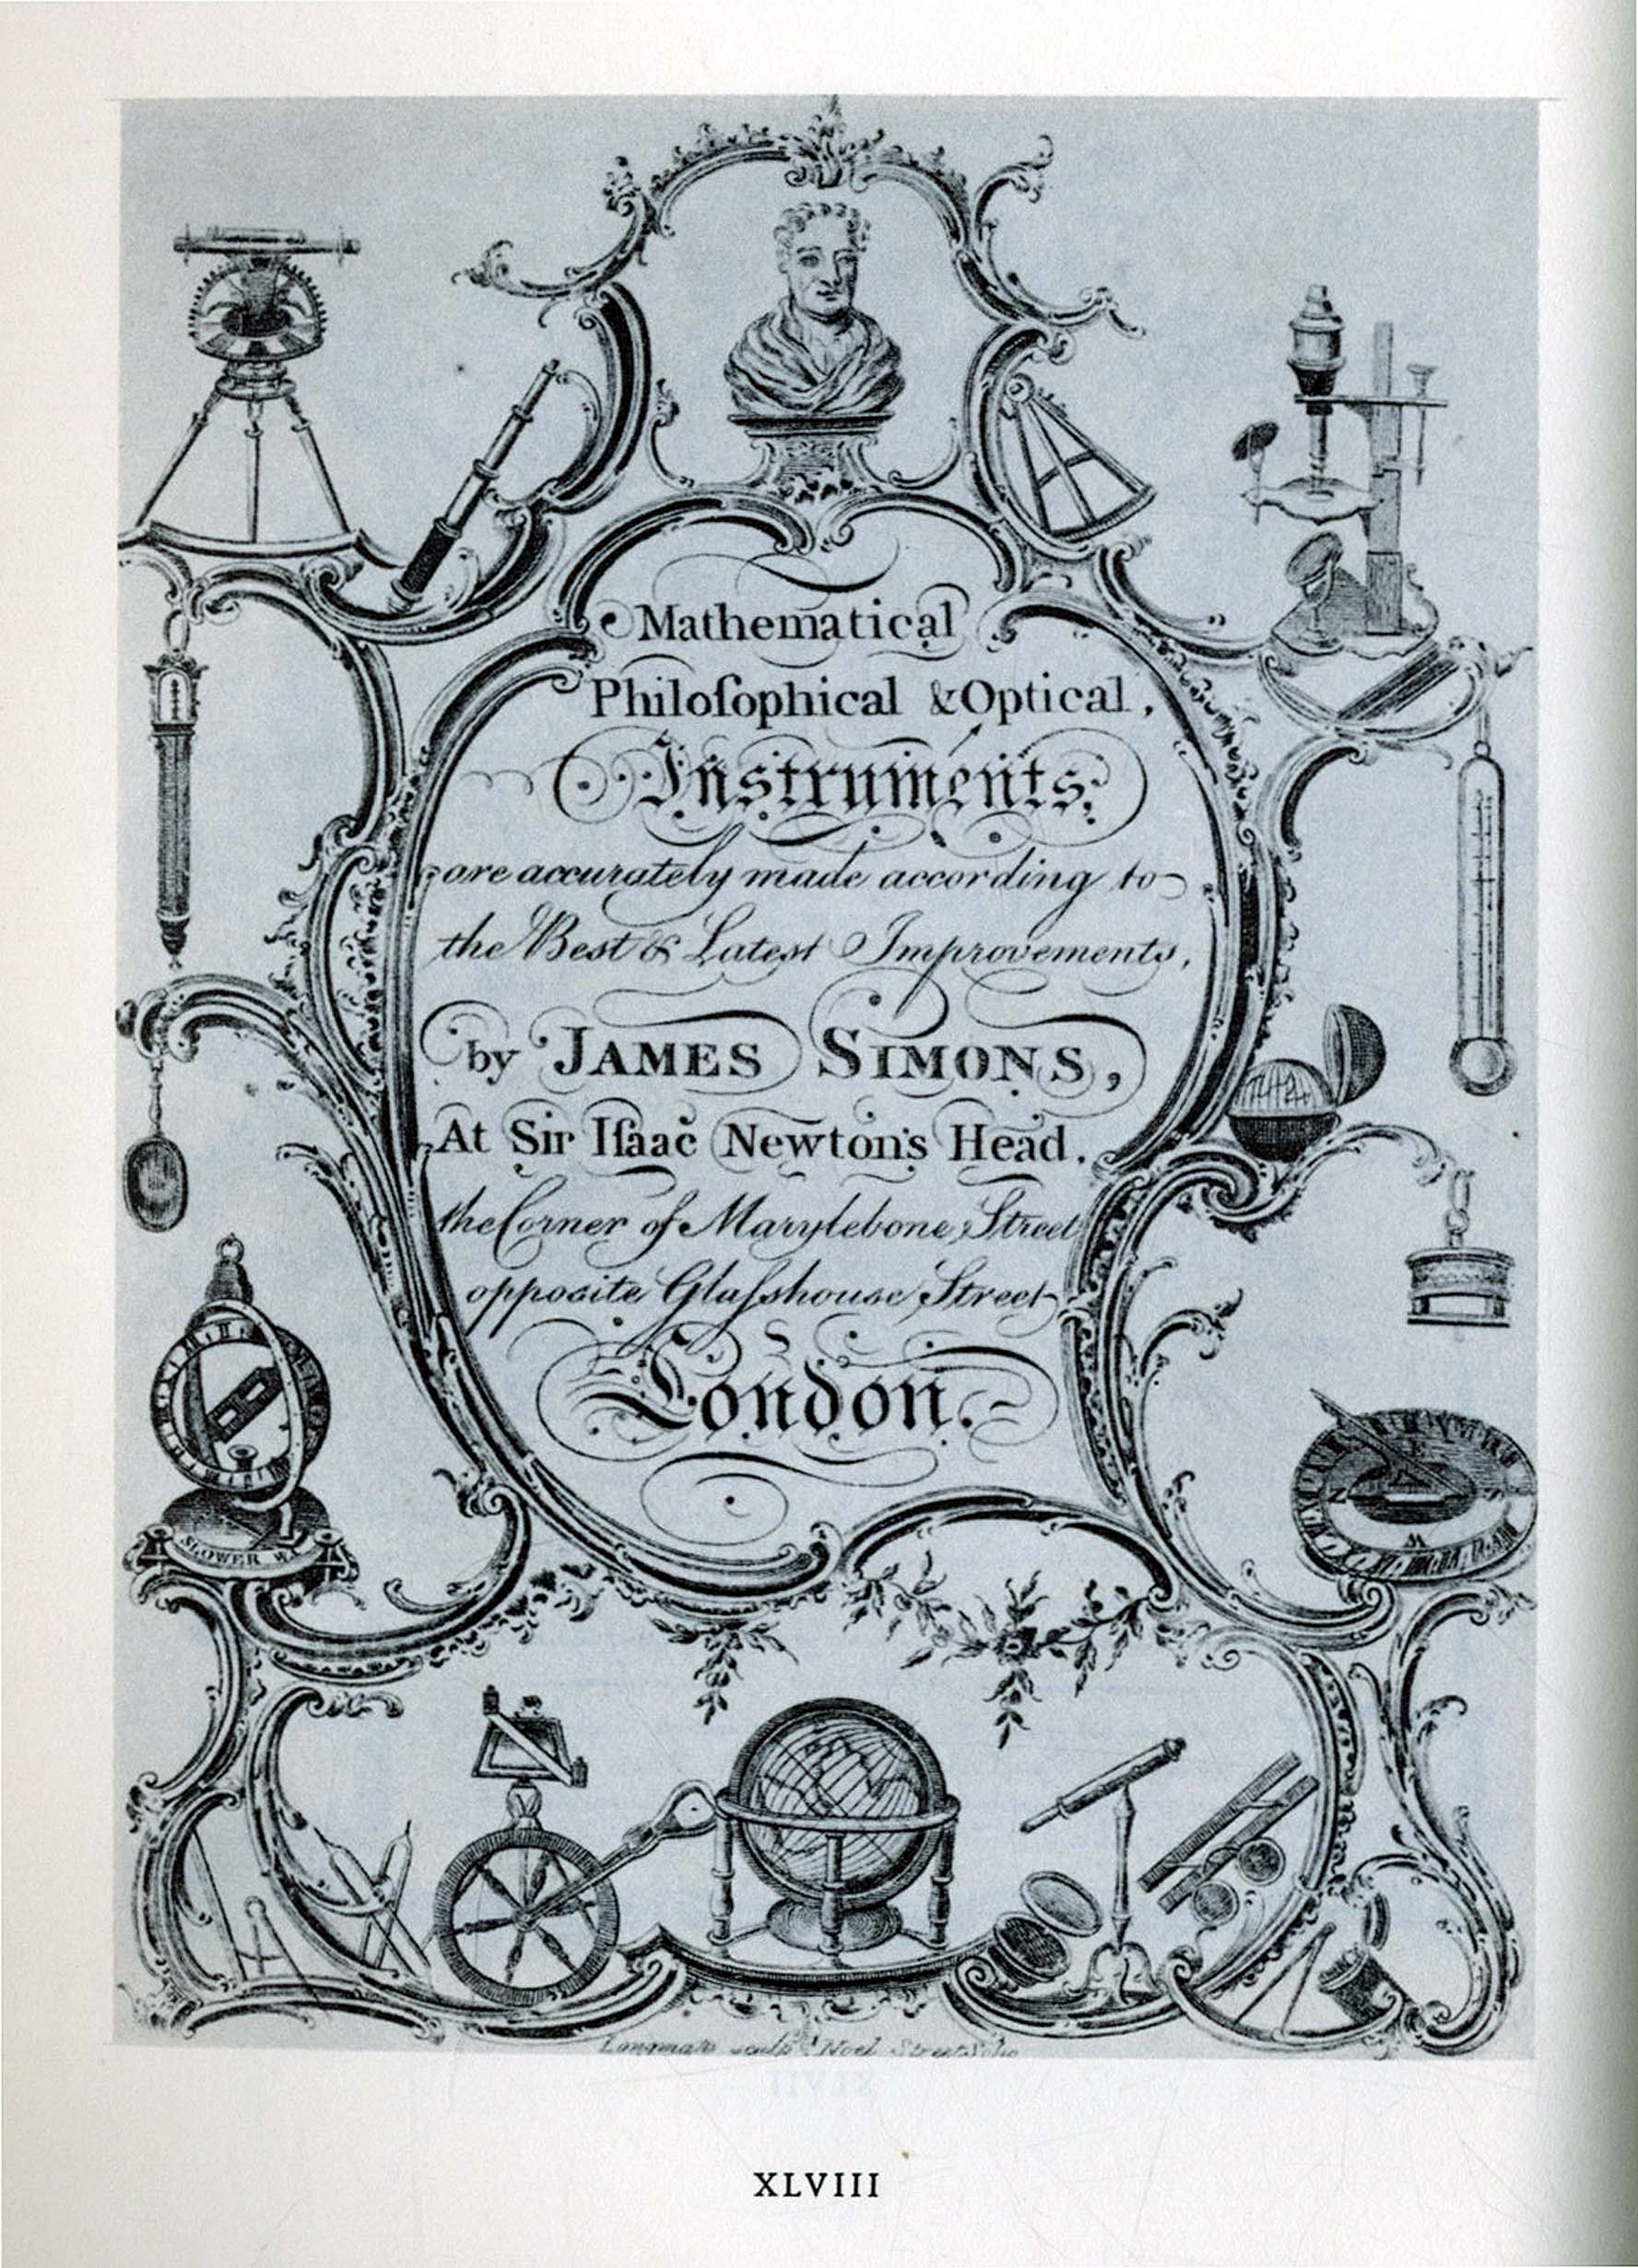 Mathematical
Philoſophical & Optical,
Instruments,
are accurately made according to
the Best & Latest Improvements,
by JAMES SIMONS,
At Sir Iſaac Newton's Head,
the Corner of Marylebone Street
opposite Glaſshouse Street
London.
SLOWER W
Longmate sculp.t Noel Street Soho
XLVIII